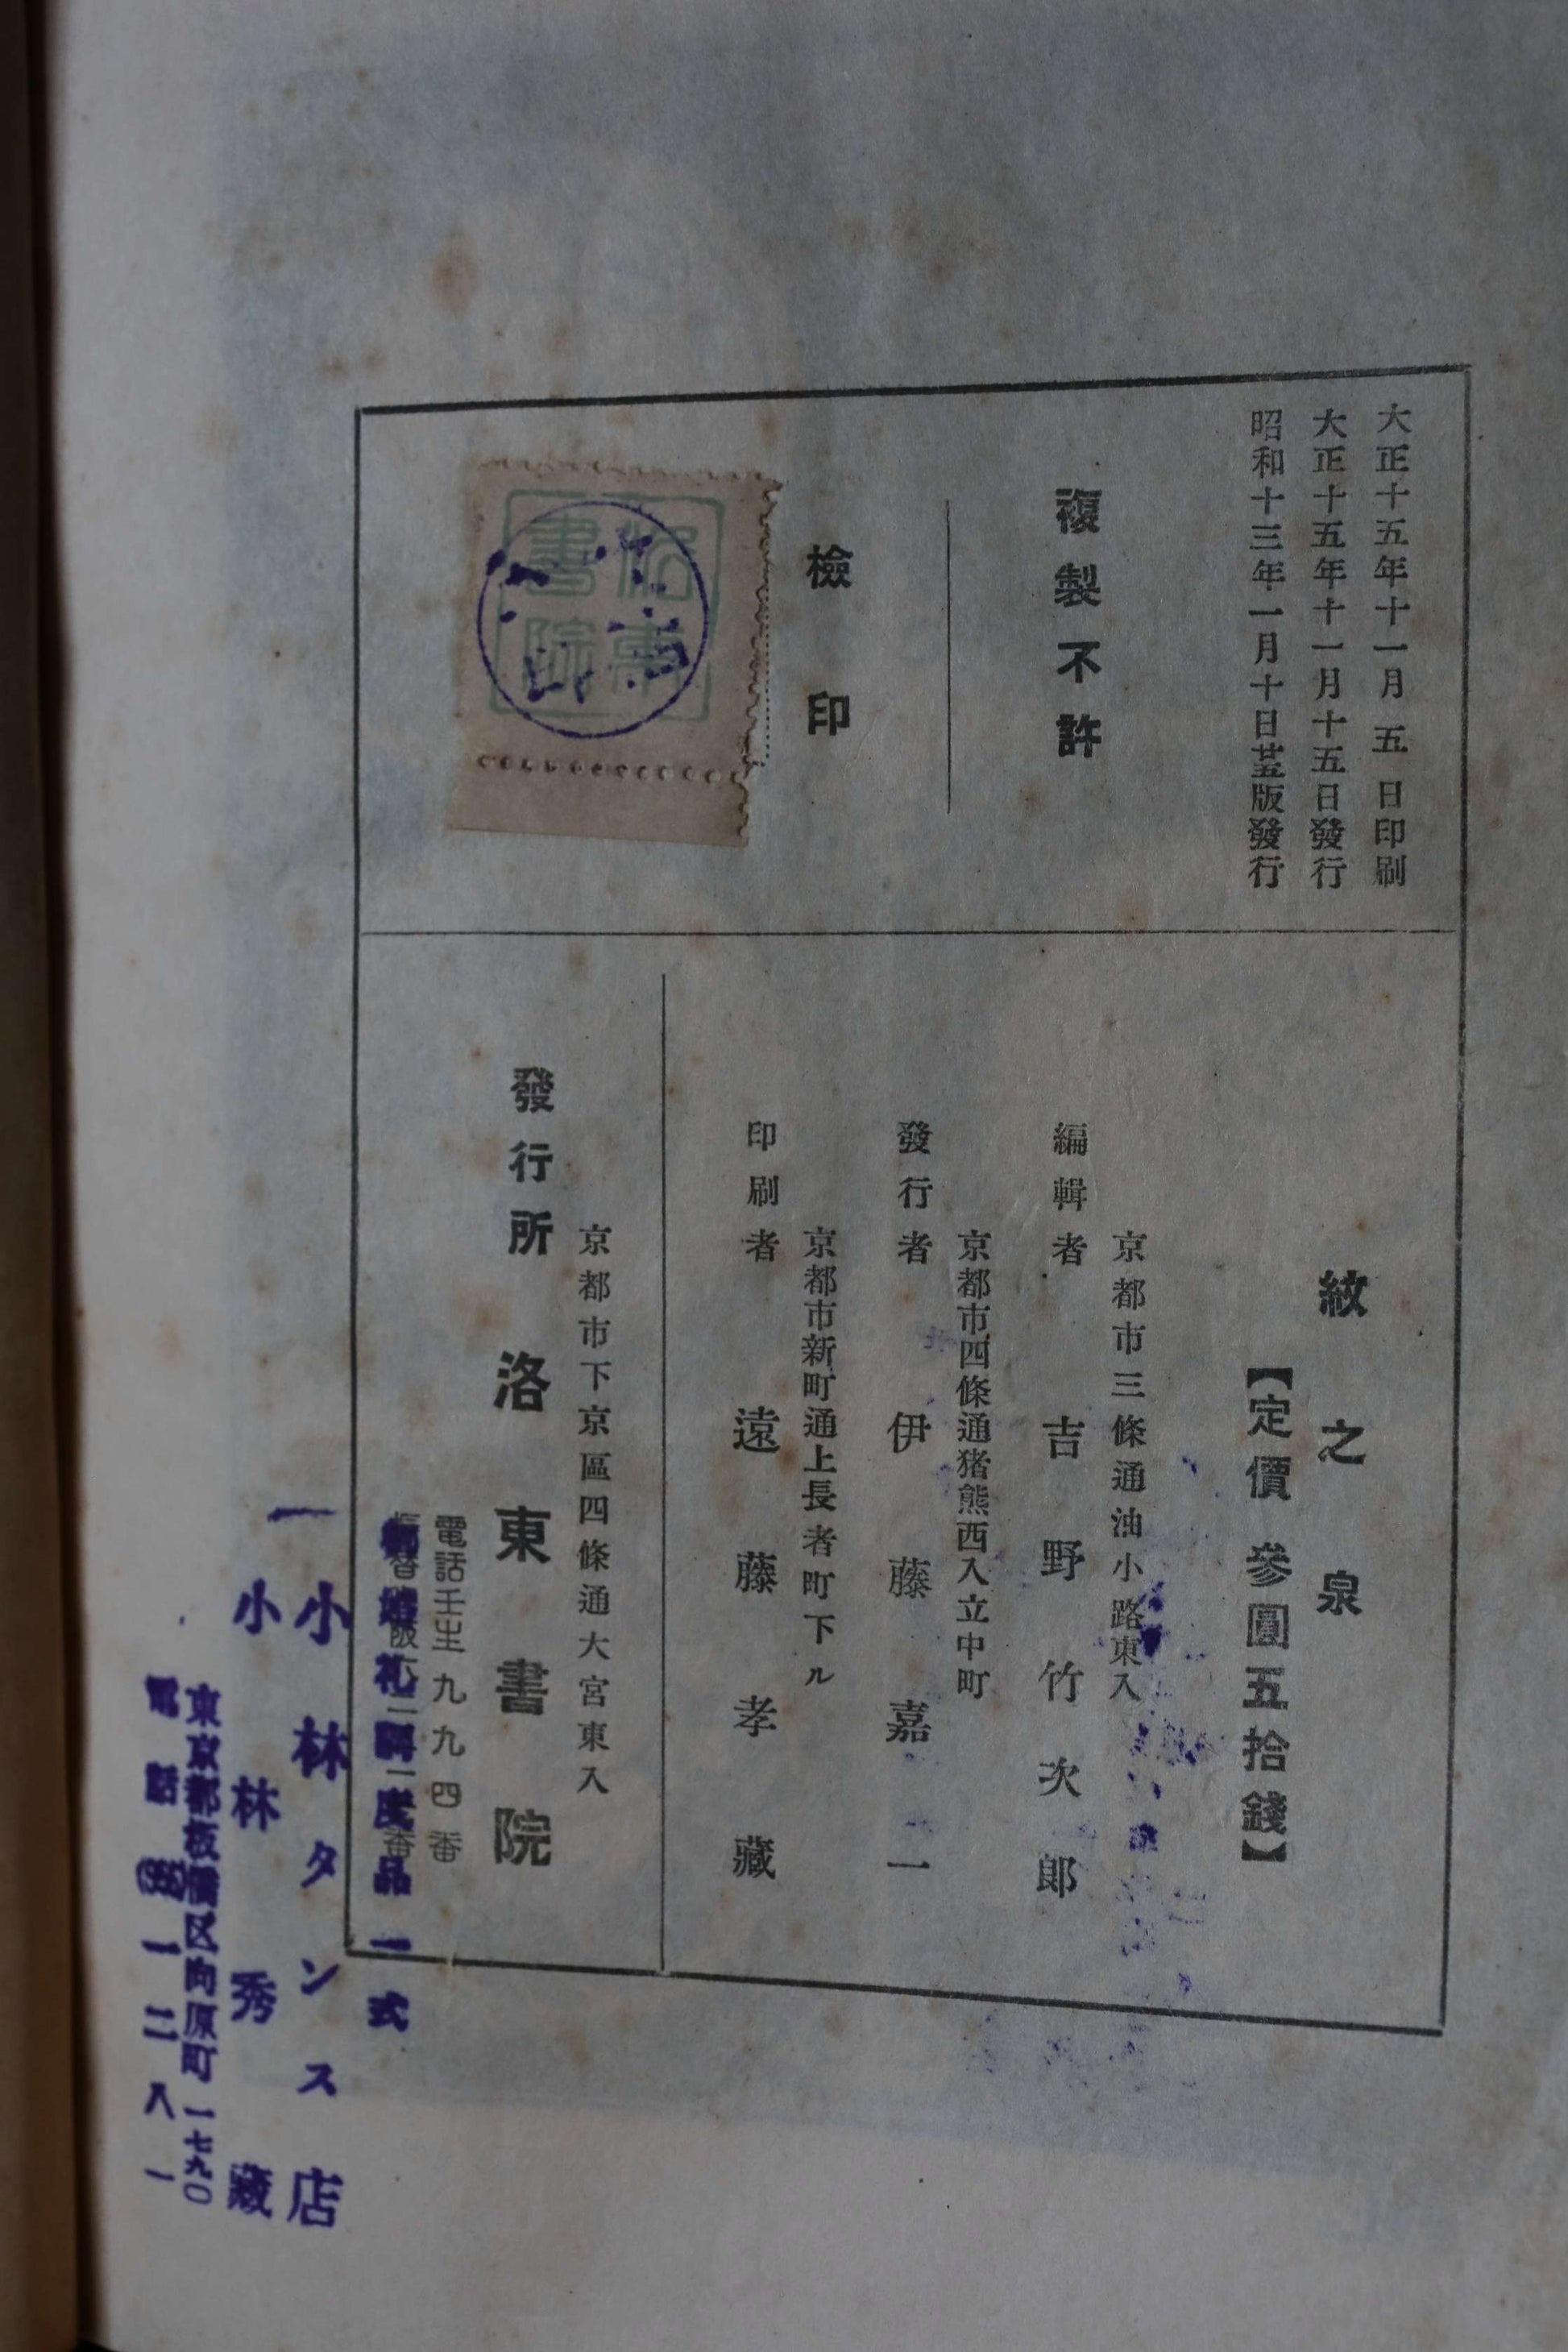 大正十五年十一月五日印刷
大正十五年十一月十五日發行
昭和十三年一月十日廿五版發行
複製不許
檢印
洛東書院
紋之泉
【定價 參圓五拾錢】
京都市三條通油小路東入
編輯者 吉野竹次郎
京都市四條通猪熊西入立中町
發行者 伊藤嘉一
京都市新町通上長者町下ル
印刷者 遠藤孝藏
京都市下京區四條通大宮東入
發行所 洛東書院
電話壬生九九四番
礼調度品一式
小林タンス店
小林秀藏
東京都板橋区向原町一七九〇
電話 一二八一